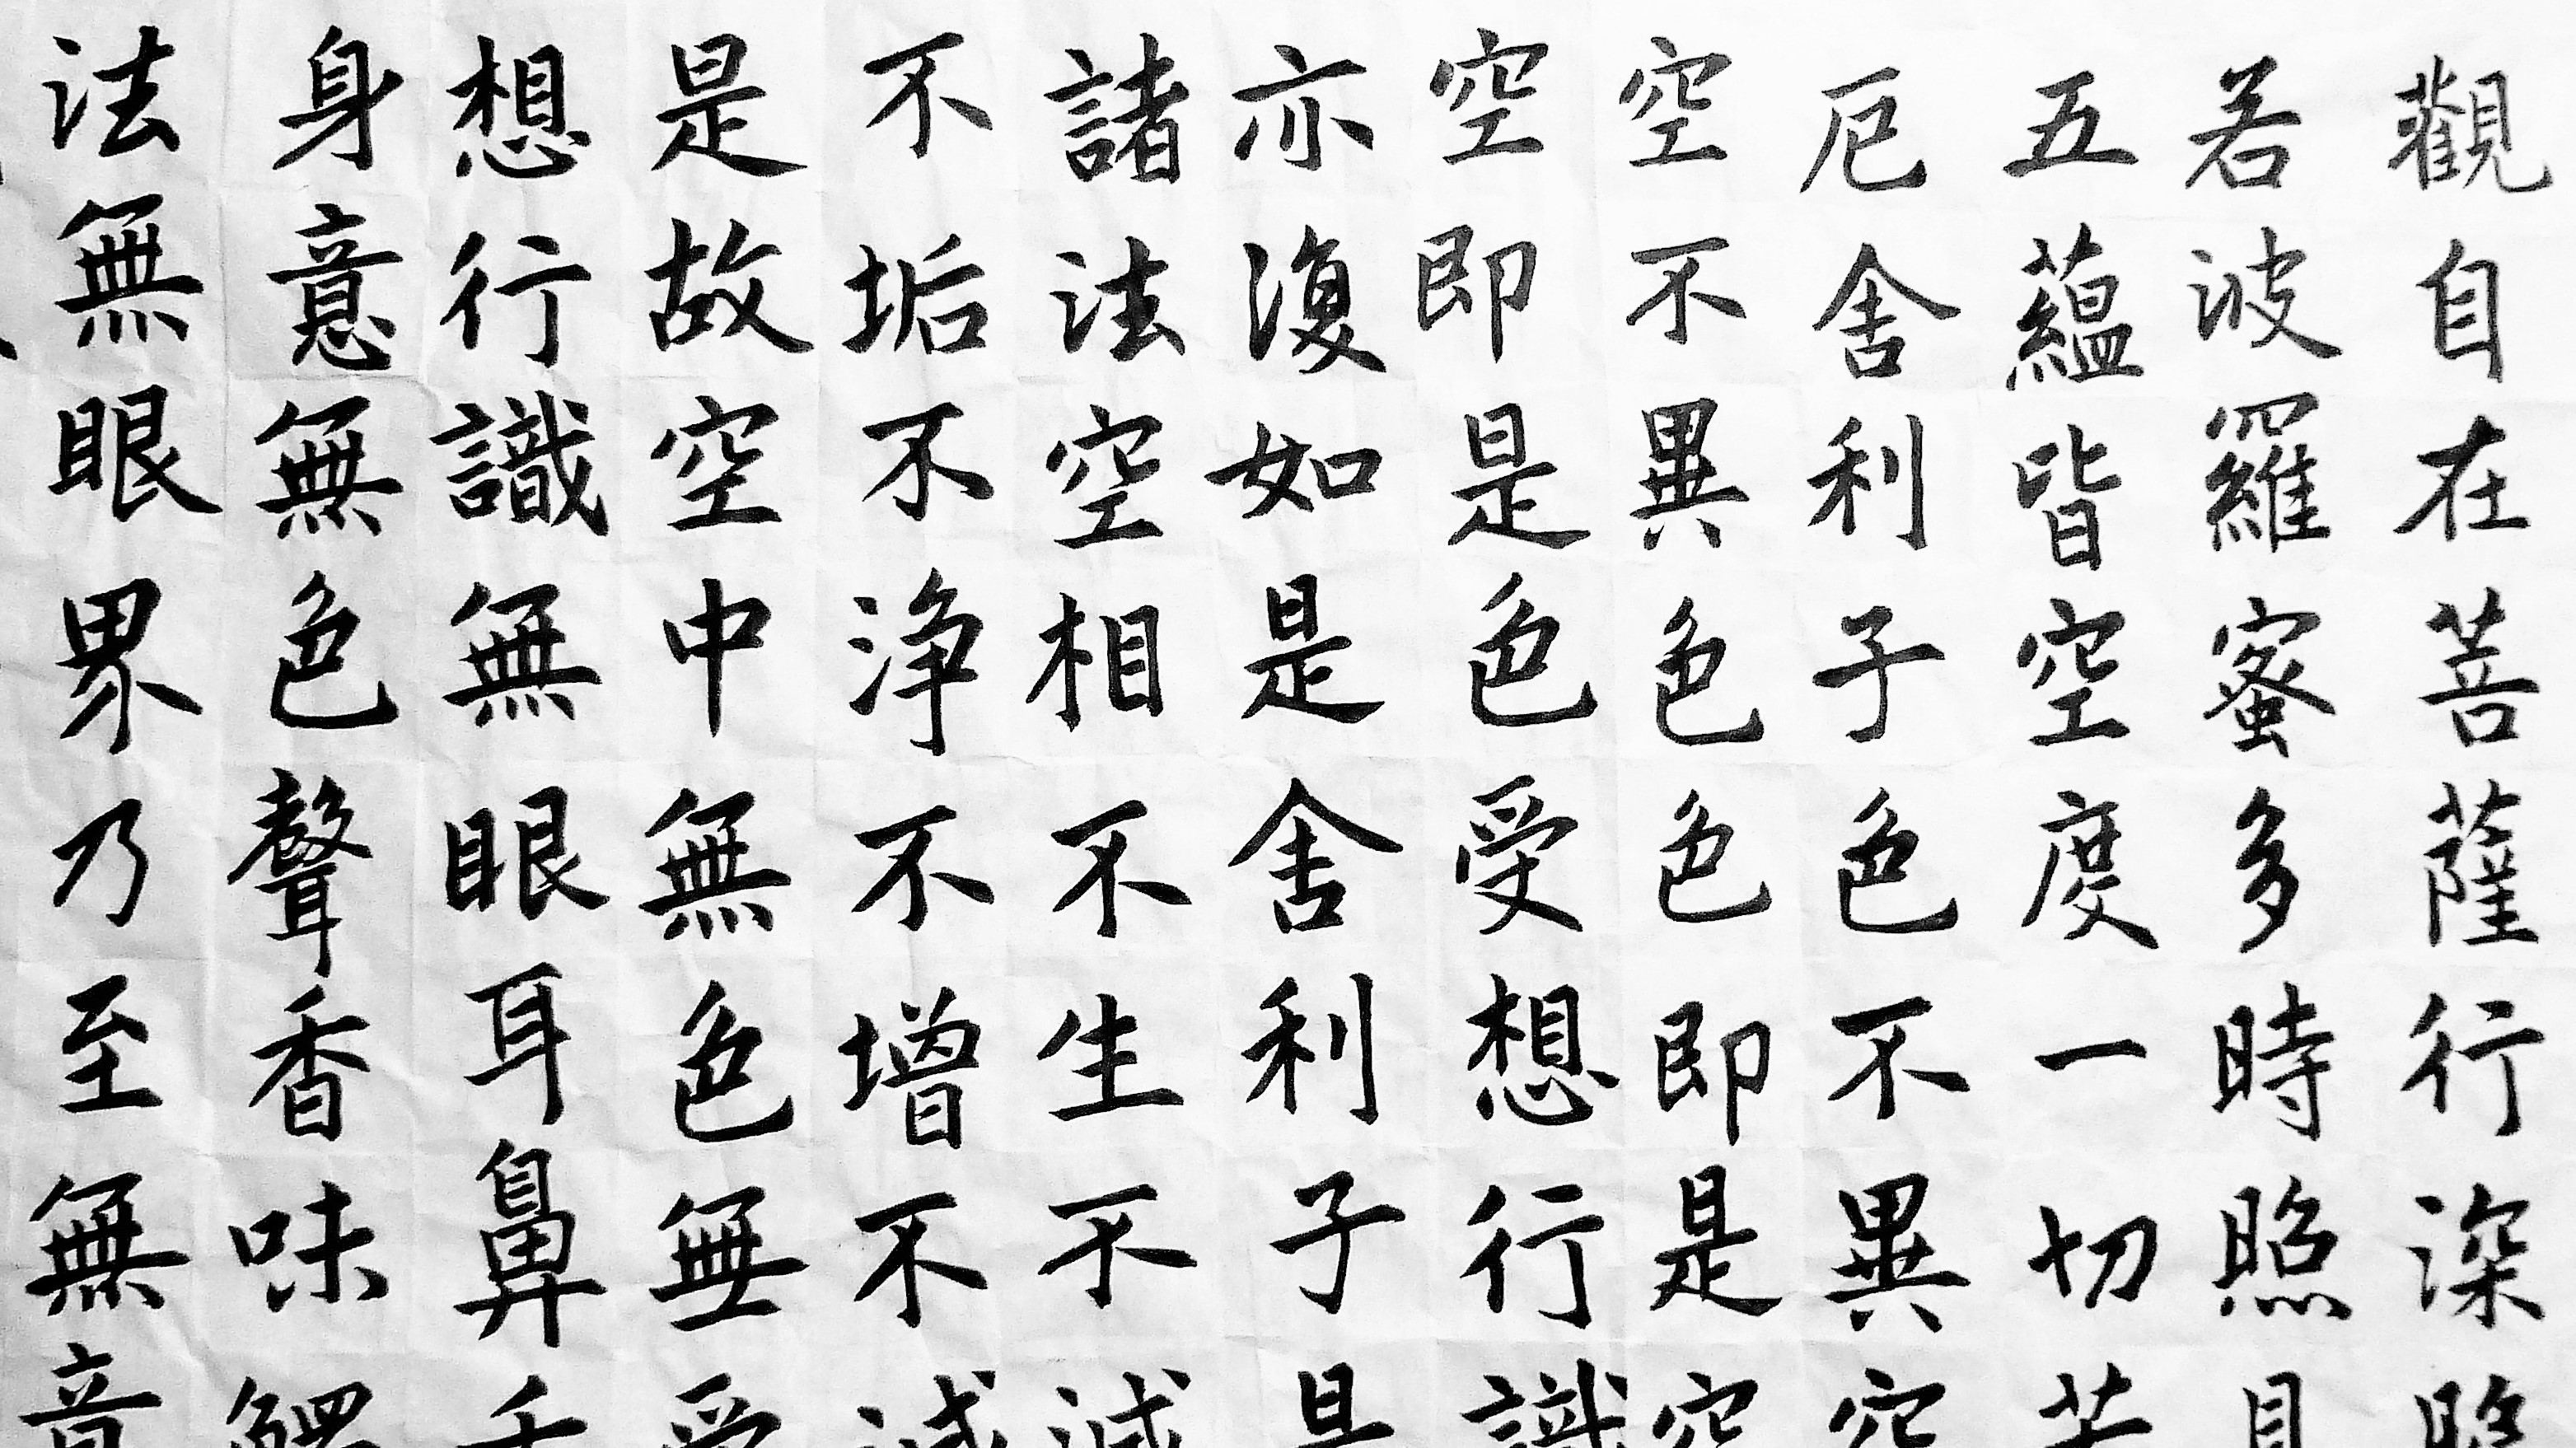 觀自在菩薩行深
若波羅蜜多時照見
五蘊皆空度一切苦
厄舍利子色不異空
空不異色色即是空
空即是色受想行識
亦復如是舍利子是
諸法空相不生不滅
不垢不浄不增不減
是故空中無色無受
想行識無眼耳鼻舌
身意無色聲香味觸
法無眼界乃至無意